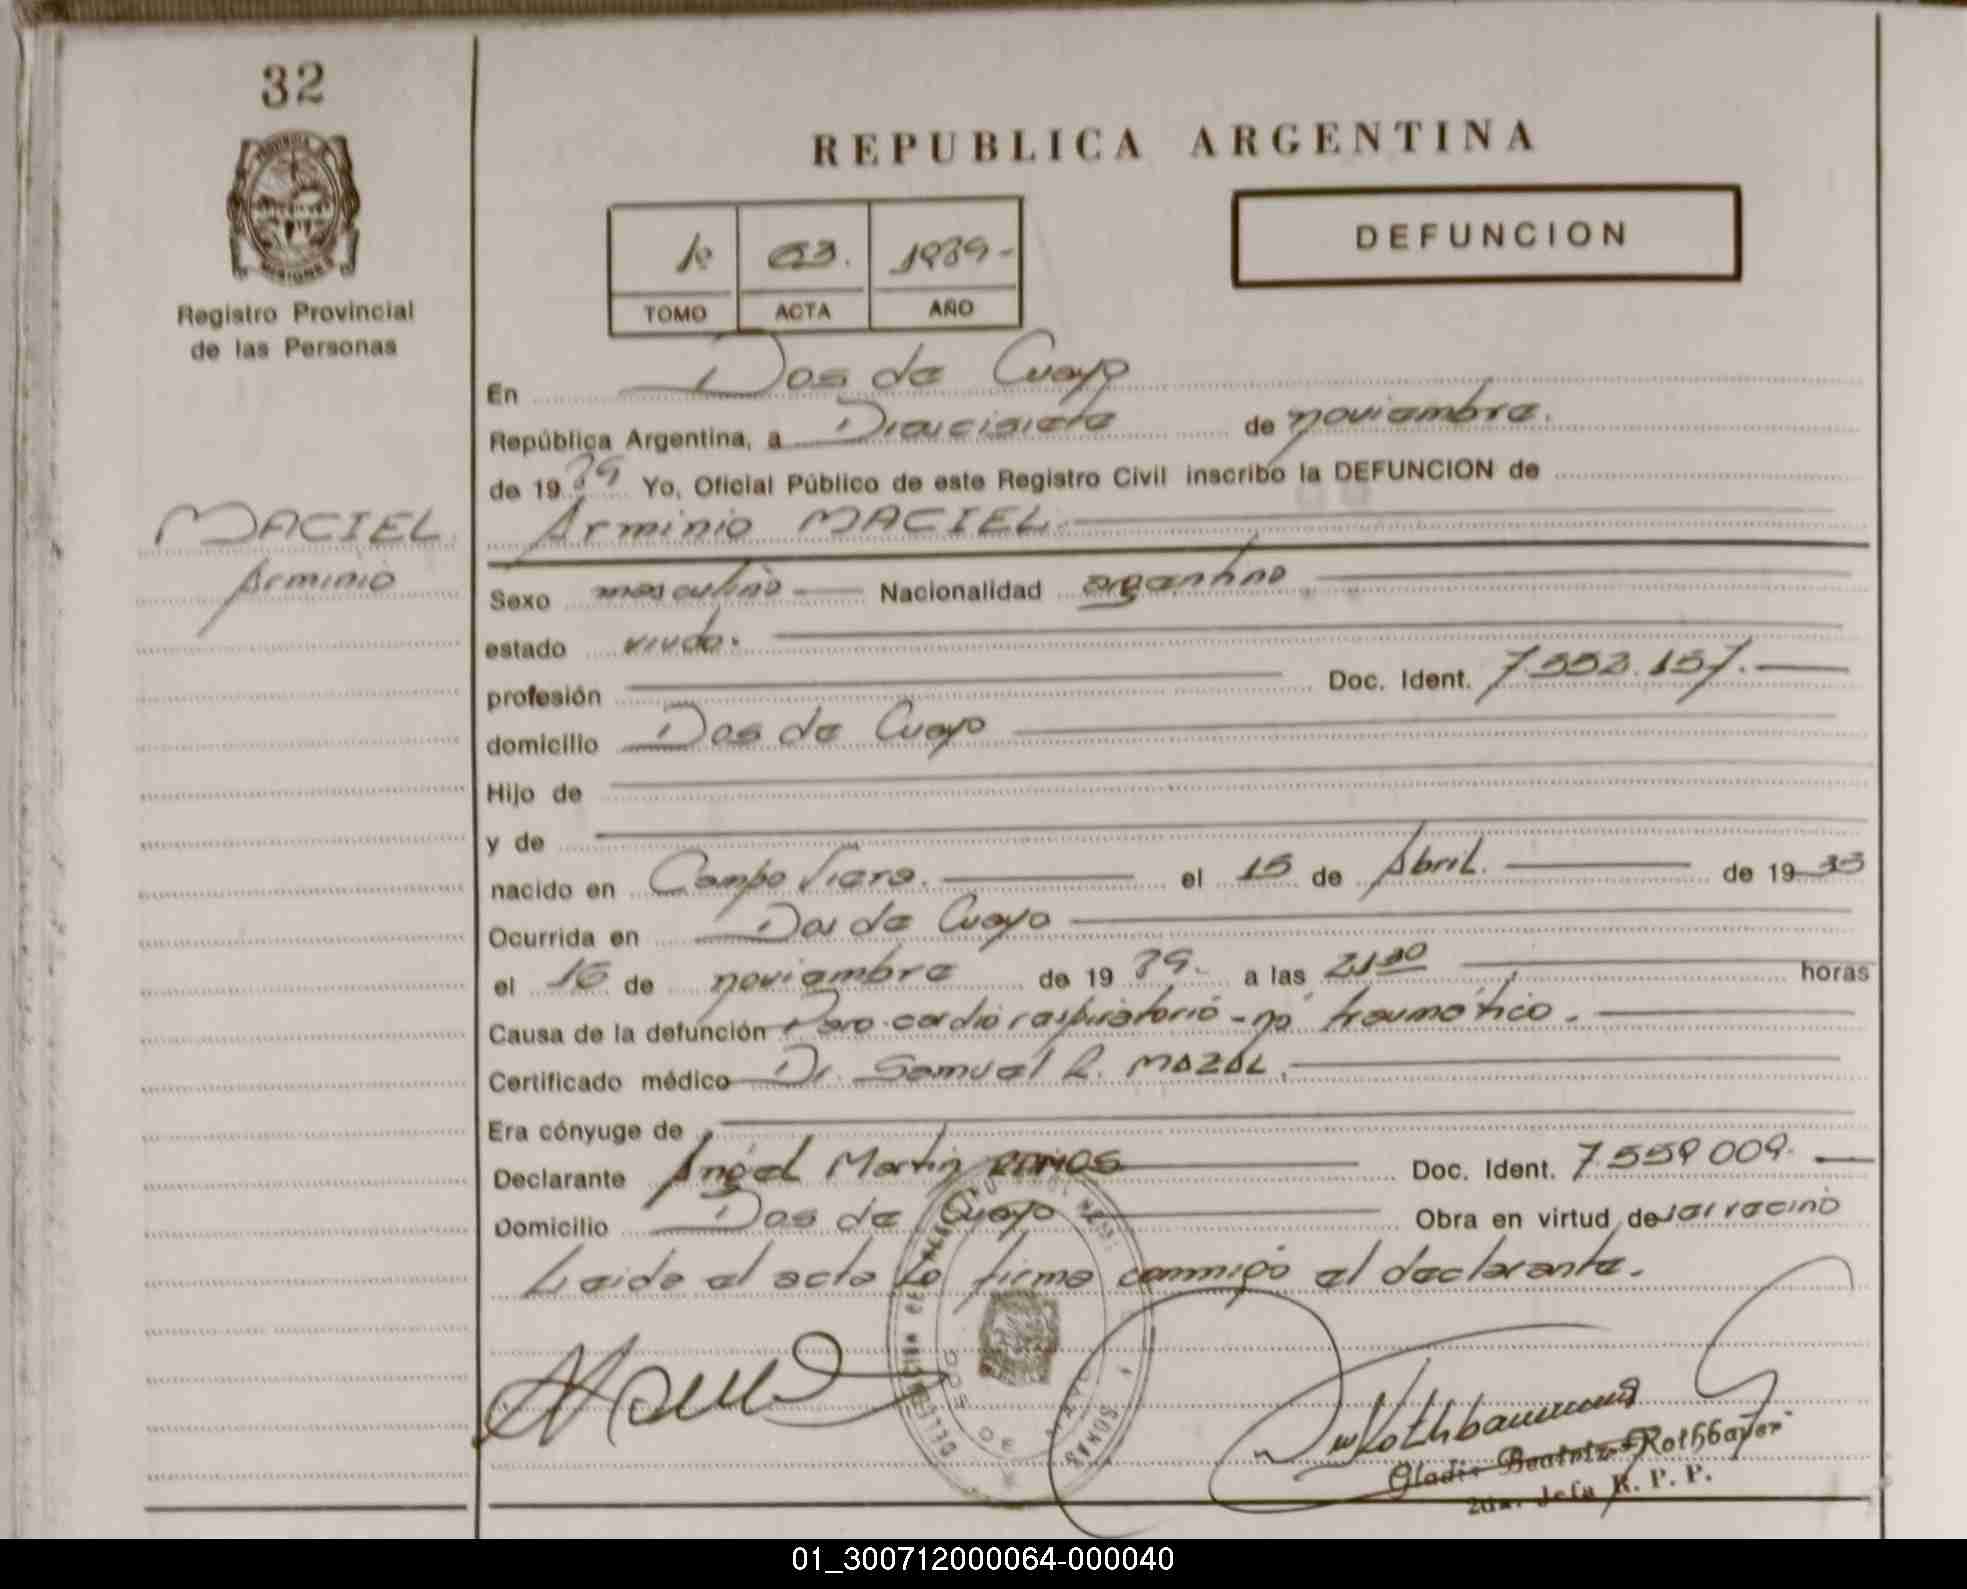 32
REPUBLICA ARGENTINA
DEFUNCION
1º 63. 1989-
TOMO ACTA AÑO
Registro Provincial
de las Personas
En Dos de Cuayo
República Argentina, a Diecisiete de noviembre.
de 19 89 Yo, Oficial Público de este Registro Civil inscribo la DEFUNCION de
Arminio MACIEL.
MACIEL
Arminio
Sexo masculino Nacionalidad argentino
estado viudo.
profesión Doc. Ident. 7.552.157.
domicilio Dos de Cuayo
Hijo de
y de
nacido en Campo Viera. el 15 de Abril. de 19 33
Ocurrida en Dos de Cuayo
el 16 de noviembre de 19 89. a las 21:30 horas
Causa de la defunción Paro cardio respiratorio - no traumático.
Certificado médico Dr. Samuel R. MAZAL.
Era cónyuge de
Declarante Angel Martin RAMOS Doc. Ident. 7.559 009.
Domicilio Dos de Cuayo Obra en virtud de
Leida el acta La firma conmigo el declarante.
Gladis Beatriz Rothbayer
2da. Jefa R. P. P.
01_300712000064-000040